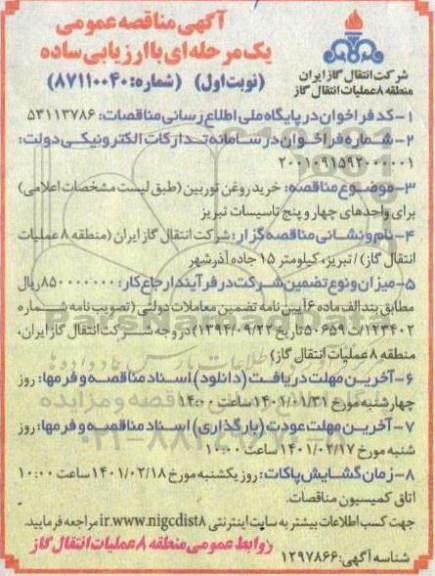 آگهی مناقصه عمومی
یک مرحله ای با ارزیابی ساده
(نوبت اول) (شماره: ۸۷۱۱۰۰۴۰)
شرکت انتقال گاز ایران
منطقه ۸ عملیات انتقال گاز
۱- کد فراخوان در پایگاه ملی اطلاع رسانی مناقصات: ۵۳۱۱۳۷۸۶
۲- شماره فراخوان در سامانه تدارکات الکترونیکی دولت:
۲۰۰۱۰۹۱۵۹۲۰۰۰۰۰۱
۳- موضوع مناقصه: خرید روغن توربین (طبق لیست مشخصات اعلامی)
برای واحدهای چهار و پنج تاسیسات تبریز
۴- نام و نشانی مناقصه گزار: شرکت انتقال گاز ایران (منطقه ۸ عملیات
انتقال گاز) / تبریز، کیلومتر ۱۵ جاده آذرشهر
۵- میزان و نوع تضمین شرکت در فرآیند ارجاع کار: ۸۵۰۰۰۰۰۰۰ ریال
مطابق بند الف ماده ۶ آیین نامه تضمین معاملات دولتی (تصویب نامه شماره
۱۲۳۴۰۲/ت۵۰۶۵۹ تاریخ ۱۳۹۴/۰۹/۲۲) در وجه شرکت انتقال گاز ایران،
منطقه ۸ عملیات انتقال گاز)
۶- آخرین مهلت دریافت (دانلود) اسناد مناقصه و فرمها: روز
چهارشنبه مورخ ۱۴۰۱/۰۱/۳۱ ساعت ۱۴:۰۰
۷- آخرین مهلت عودت (بارگذاری) اسناد مناقصه و فرمها: روز
شنبه مورخ ۱۴۰۱/۰۲/۱۷ ساعت ۱۰:۰۰
۸- زمان گشایش پاکات: روز یکشنبه مورخ ۱۴۰۱/۰۲/۱۸ ساعت ۱۰:۰۰
اتاق کمیسیون مناقصات.
جهت کسب اطلاعات بیشتر به سایت اینترنتی ir.www.nigcdist۸ مراجعه فرمایید.
روابط عمومی منطقه ۸ عملیات انتقال گاز
شناسه آگهی: ۱۲۹۷۸۶۶